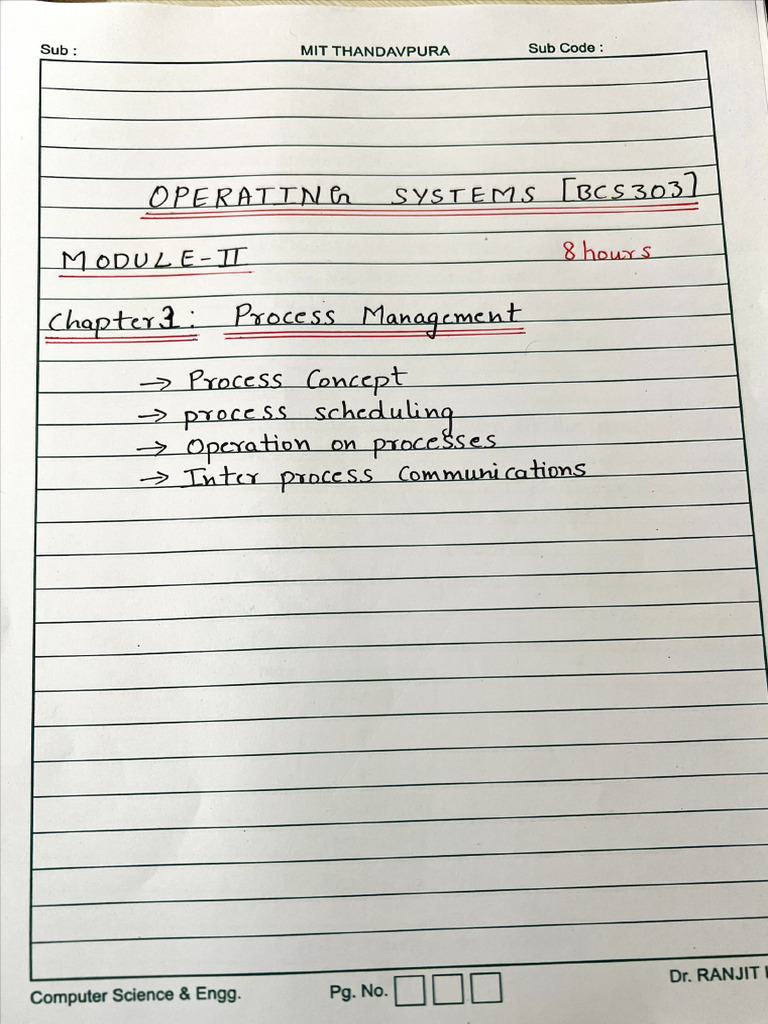 Sub : MIT THANDAVPURA Sub Code :
OPERATING SYSTEMS [BCS303]
MODULE-II 8 hours
Chapter 1: Process Management
→ Process Concept
→ process scheduling
→ Operation on processes
→ Inter process Communications
Computer Science & Engg. Pg. No. Dr. RANJIT